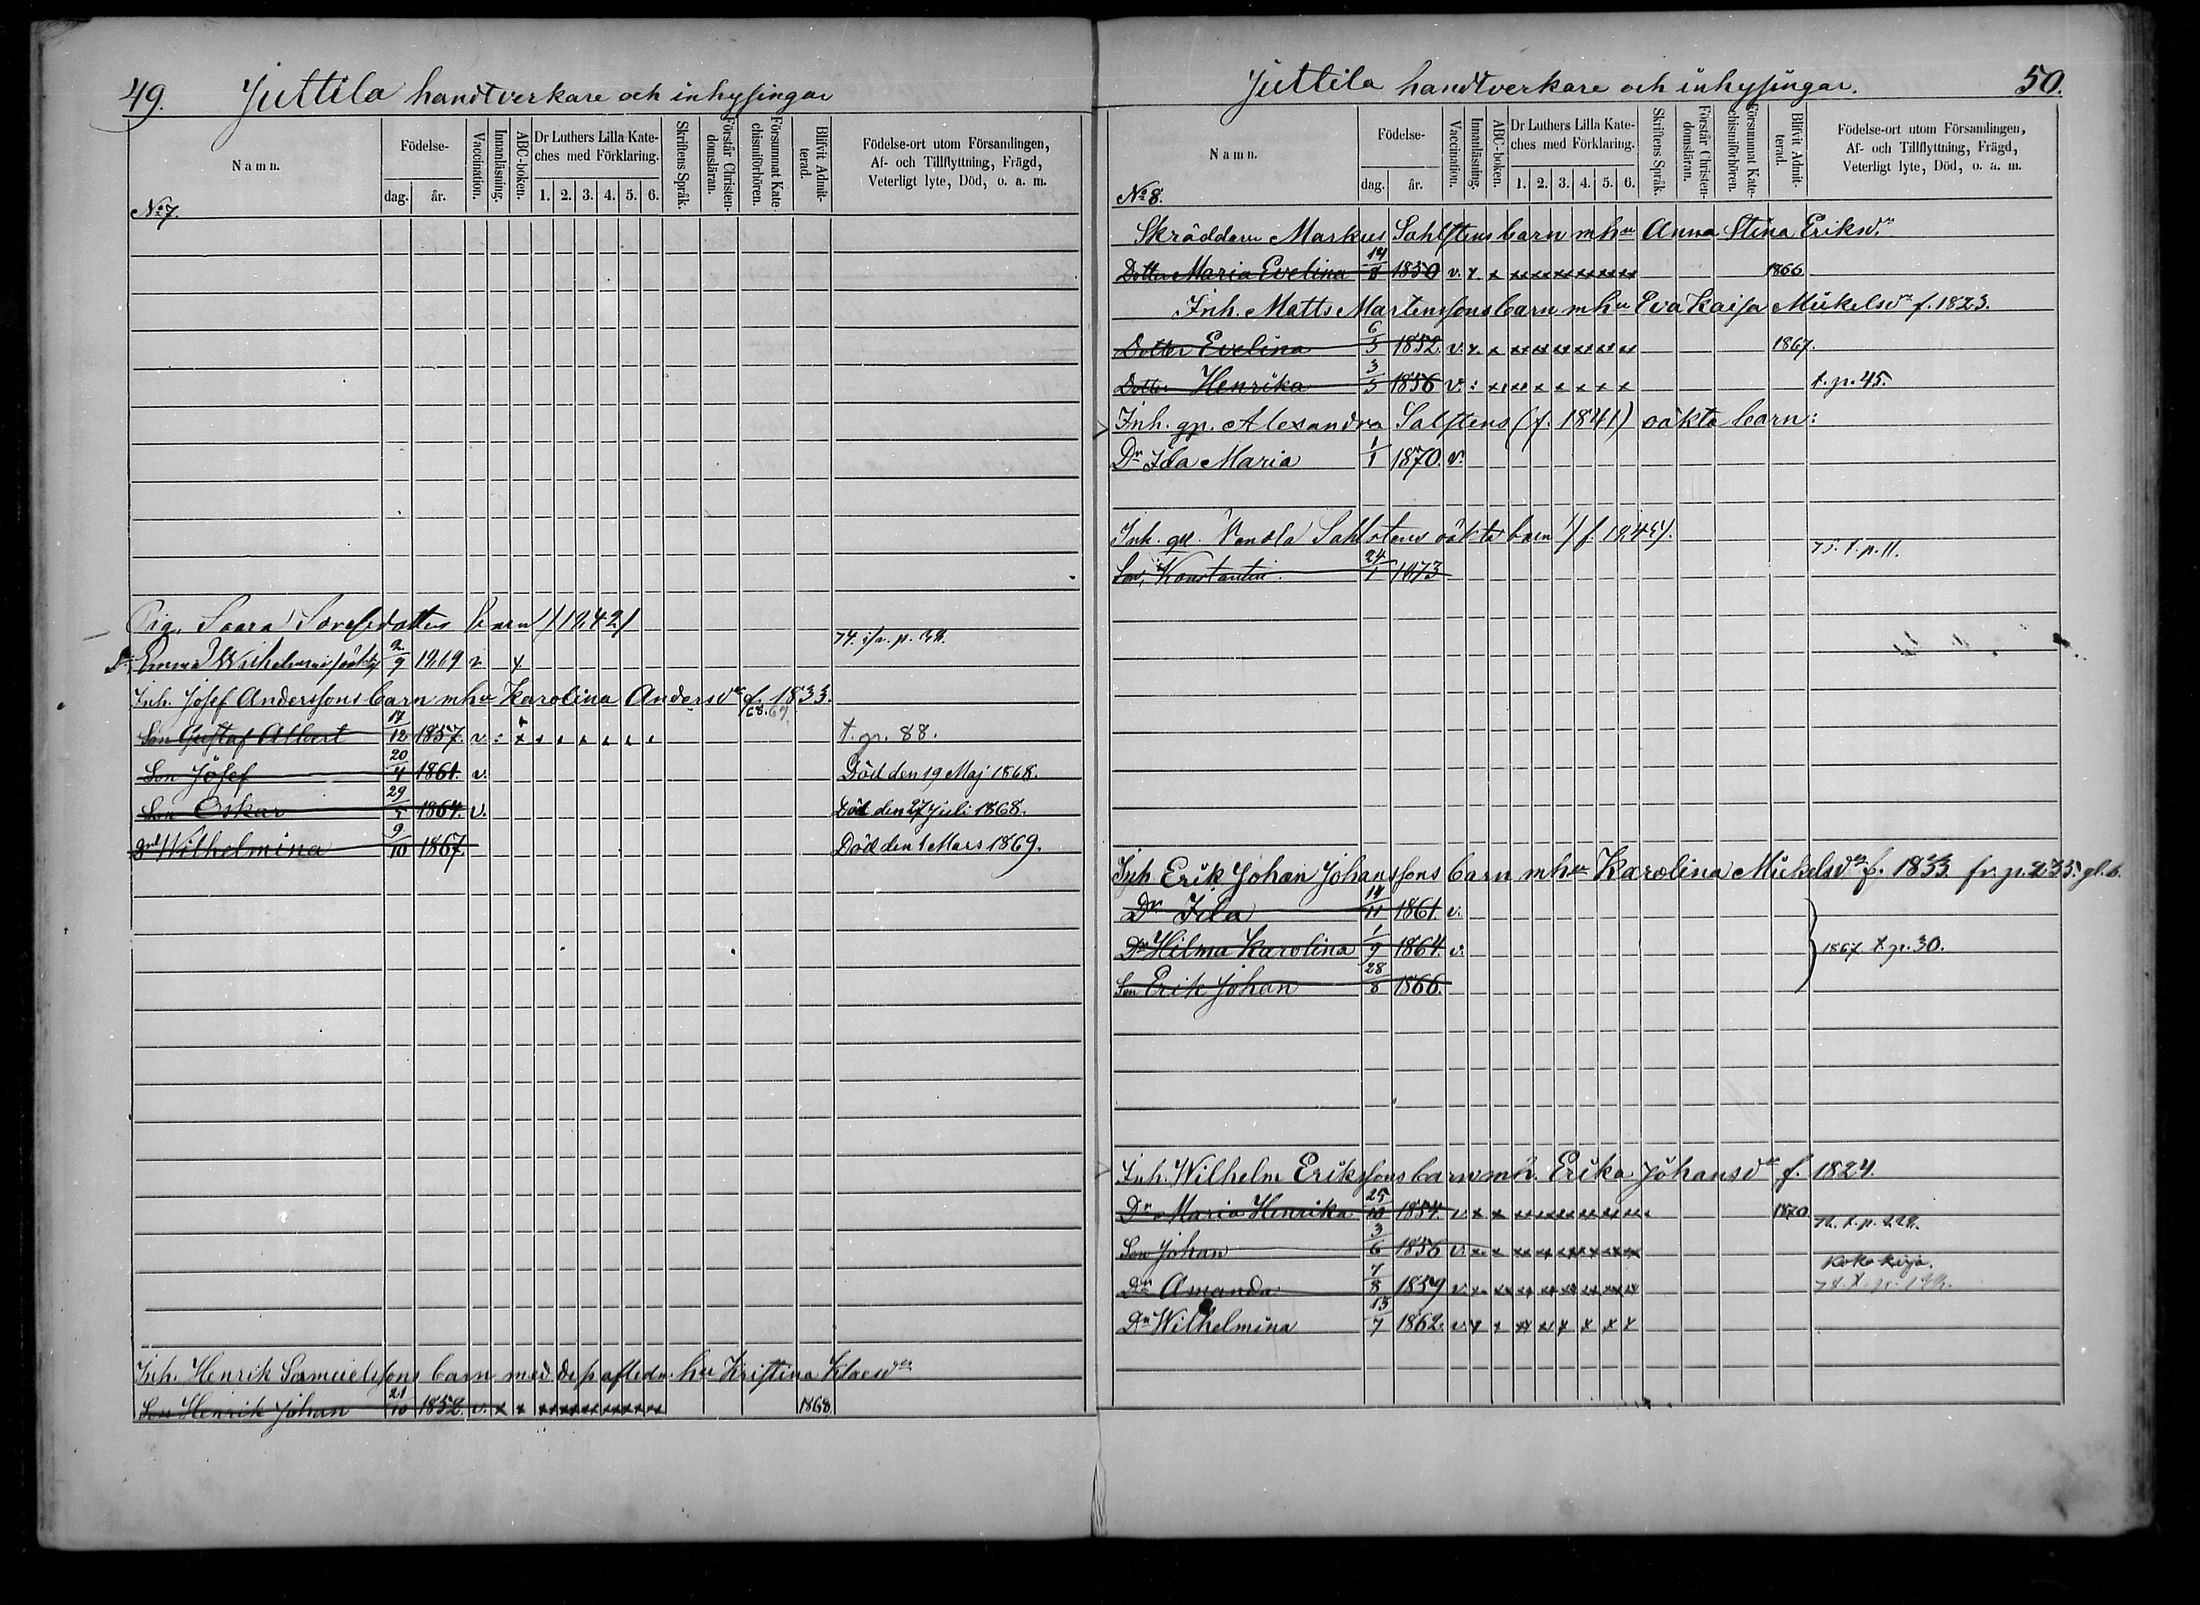 49. Juttila handtverkare och inhysingar
Namn. Födelse- dag. år. Vaccination. Innanläsning. ABC-boken. Dr Luthers Lilla Kate-ches med Förklaring. 1. 2. 3. 4. 5. 6. Skriftens Språk. Förstår Christen-domsläran. Försummat Kate-chismiförhören. Blifvit Admit-terad. Födelse-ort utom Församlingen, Af- och Tillflyttning, Frägd, Veterligt lyte, Död, o. a. m.
No 7.
Pig. Saara barn (1842)
Emma Wilhelmina 2/9 1869 v x 74.
Inh. Josef Anderssons barn mhu Karolina Andersdr f. 1833.
68. 69.
Son Gustaf Albert 17/12 1857. v. t. p. 88.
Son Josef 20/4 1861. v. Död den 19 Maj 1868.
Son Oskar 29/5 1864. v. Död den 27 Juli 1868.
Dr Wilhelmina 9/10 1867. Död den 1 Mars 1869.
Inh. Henrik Samuelssons barn med des aflidn. hu Kristina Klaesdr
Son Henrik Johan 21/10 1852. v. x x x x x x x x 1868
Juttila handtverkare och inhysingar. 50.
Namn. Födelse- dag. år. Vaccination. Innanläsning. ABC-boken. Dr Luthers Lilla Kate-ches med Förklaring. 1. 2. 3. 4. 5. 6. Skriftens Språk. Förstår Christen-domsläran. Försummat Kate-chismiförhören. Blifvit Admit-terad. Födelse-ort utom Församlingen, Af- och Tillflyttning, Frägd, Veterligt lyte, Död, o. a. m.
No 8.
Skräddarn Markus Sahlstens barn mhu Anna Stina Eriksdr
Dotter Maria Evelina 14/8 1850 v. x x x x x x x x 1866
Inh. Matts Martenssons barn mhu Eva Kaisa Mickelsdr f. 1823.
Dotter Evelina 6/5 1852. v. x. x x x x x x x 1867.
Dotter Henrika 3/5 1856 v. : x x x x x x x t. p. 45.
Inh. qp. Alexandra Salstens (f. 1841) oäkta barn:
Dr Ida Maria 1/1 1870. v.
Inh. qp. Vendla Sahlstens oäkta barn (f. 1845).
Son, Konstantin. 24/1 1873 75. t. p. 11.
Inh Erik Johan Johanssons barn mhu Karolina Mickelsdr f. 1833 fr. p. 235. gl. b.
Dr Ida 14/11 1861. v.
Dr Hilma Karolina 1/9 1864. v. 1867 t. p. 30.
Son Erik Johan 28/8 1866.
Inh. Wilhelm Erikssons barn mh. Erika Johansdr f. 1824.
Dr Maria Henrika 25/10 1854. v. x x x x x x x x 1870
Son Johan 3/6 1856 v. x x x x x x x x
Koko kirja.
Dr Amanda 7/8 1859 v. x x x x x x x x
Dr Wilhelmina 15/7 1862. v. x x x x x x x x